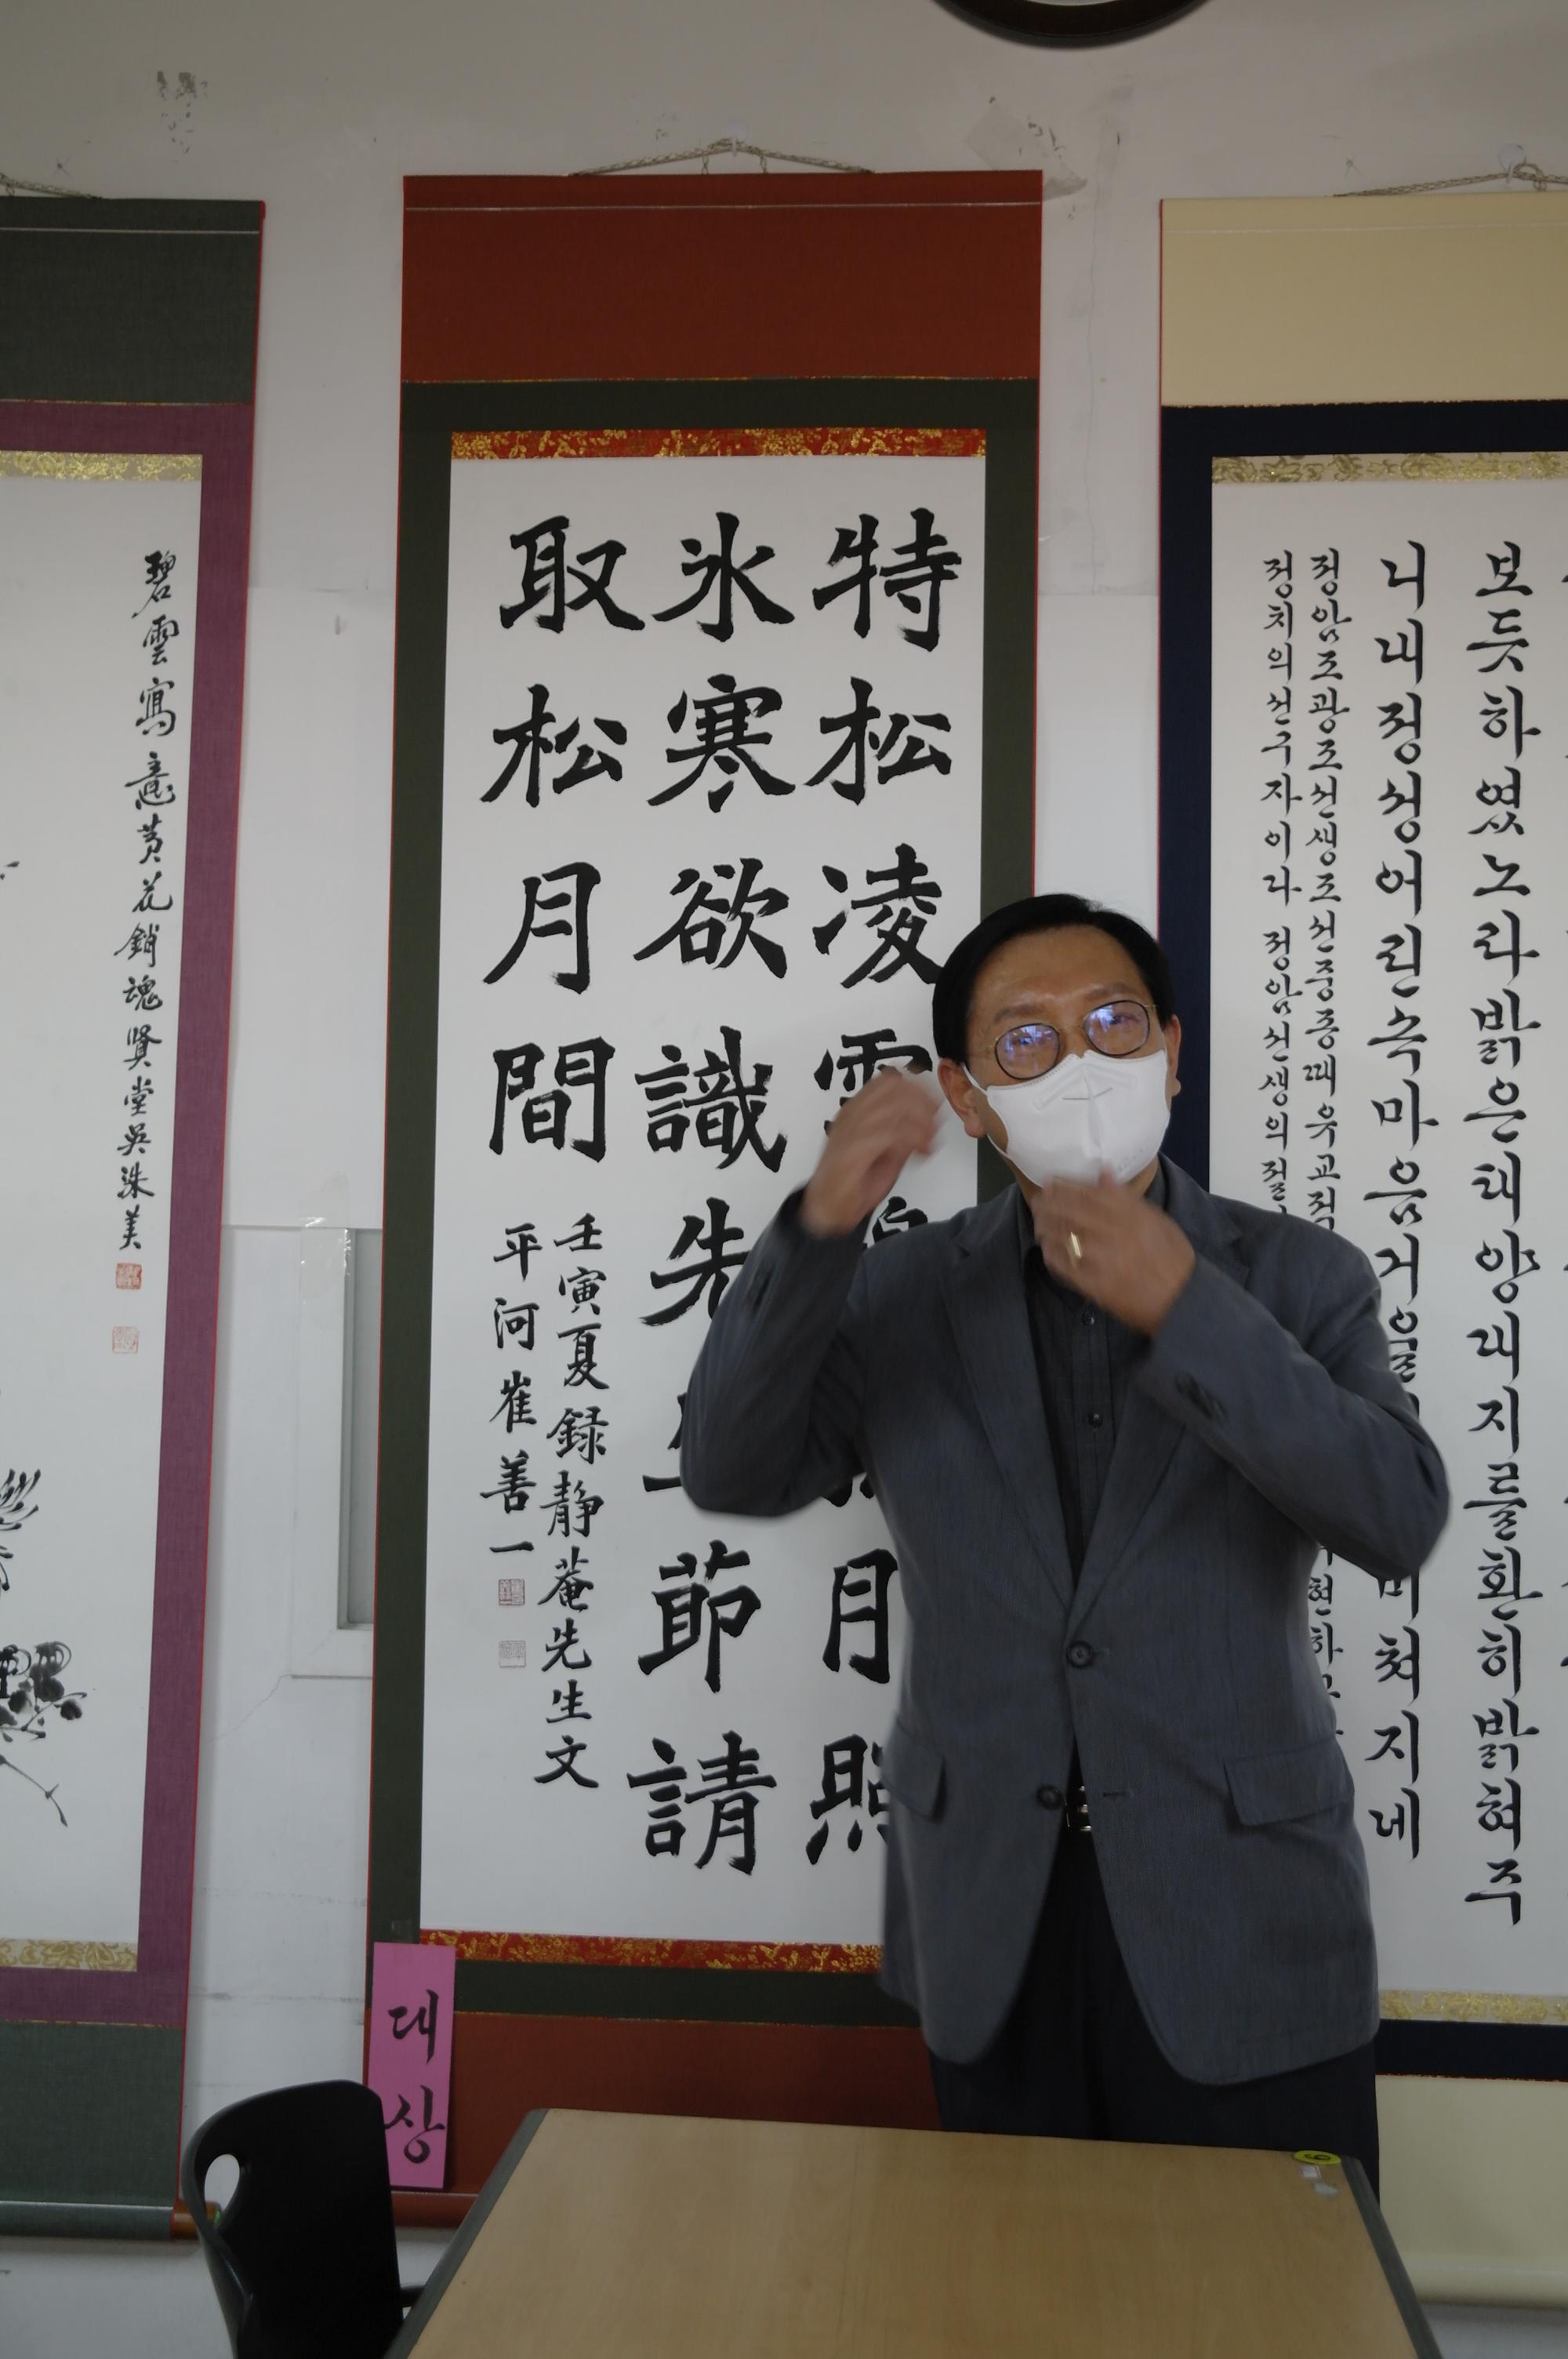 碧雲寫意黃花銷魂賢堂吳洙美
特松凌
月照
氷寒欲識先生節請
取松月間
壬寅夏錄靜菴先生文
平河崔善一
대상
보듯하였노라밝은태양대지를환히밝혀주
니내정성어린속마음거울 비쳐지네
정암조광조선생조선중종때유교적 현하
정치의선구자이다 정암선생의절
6